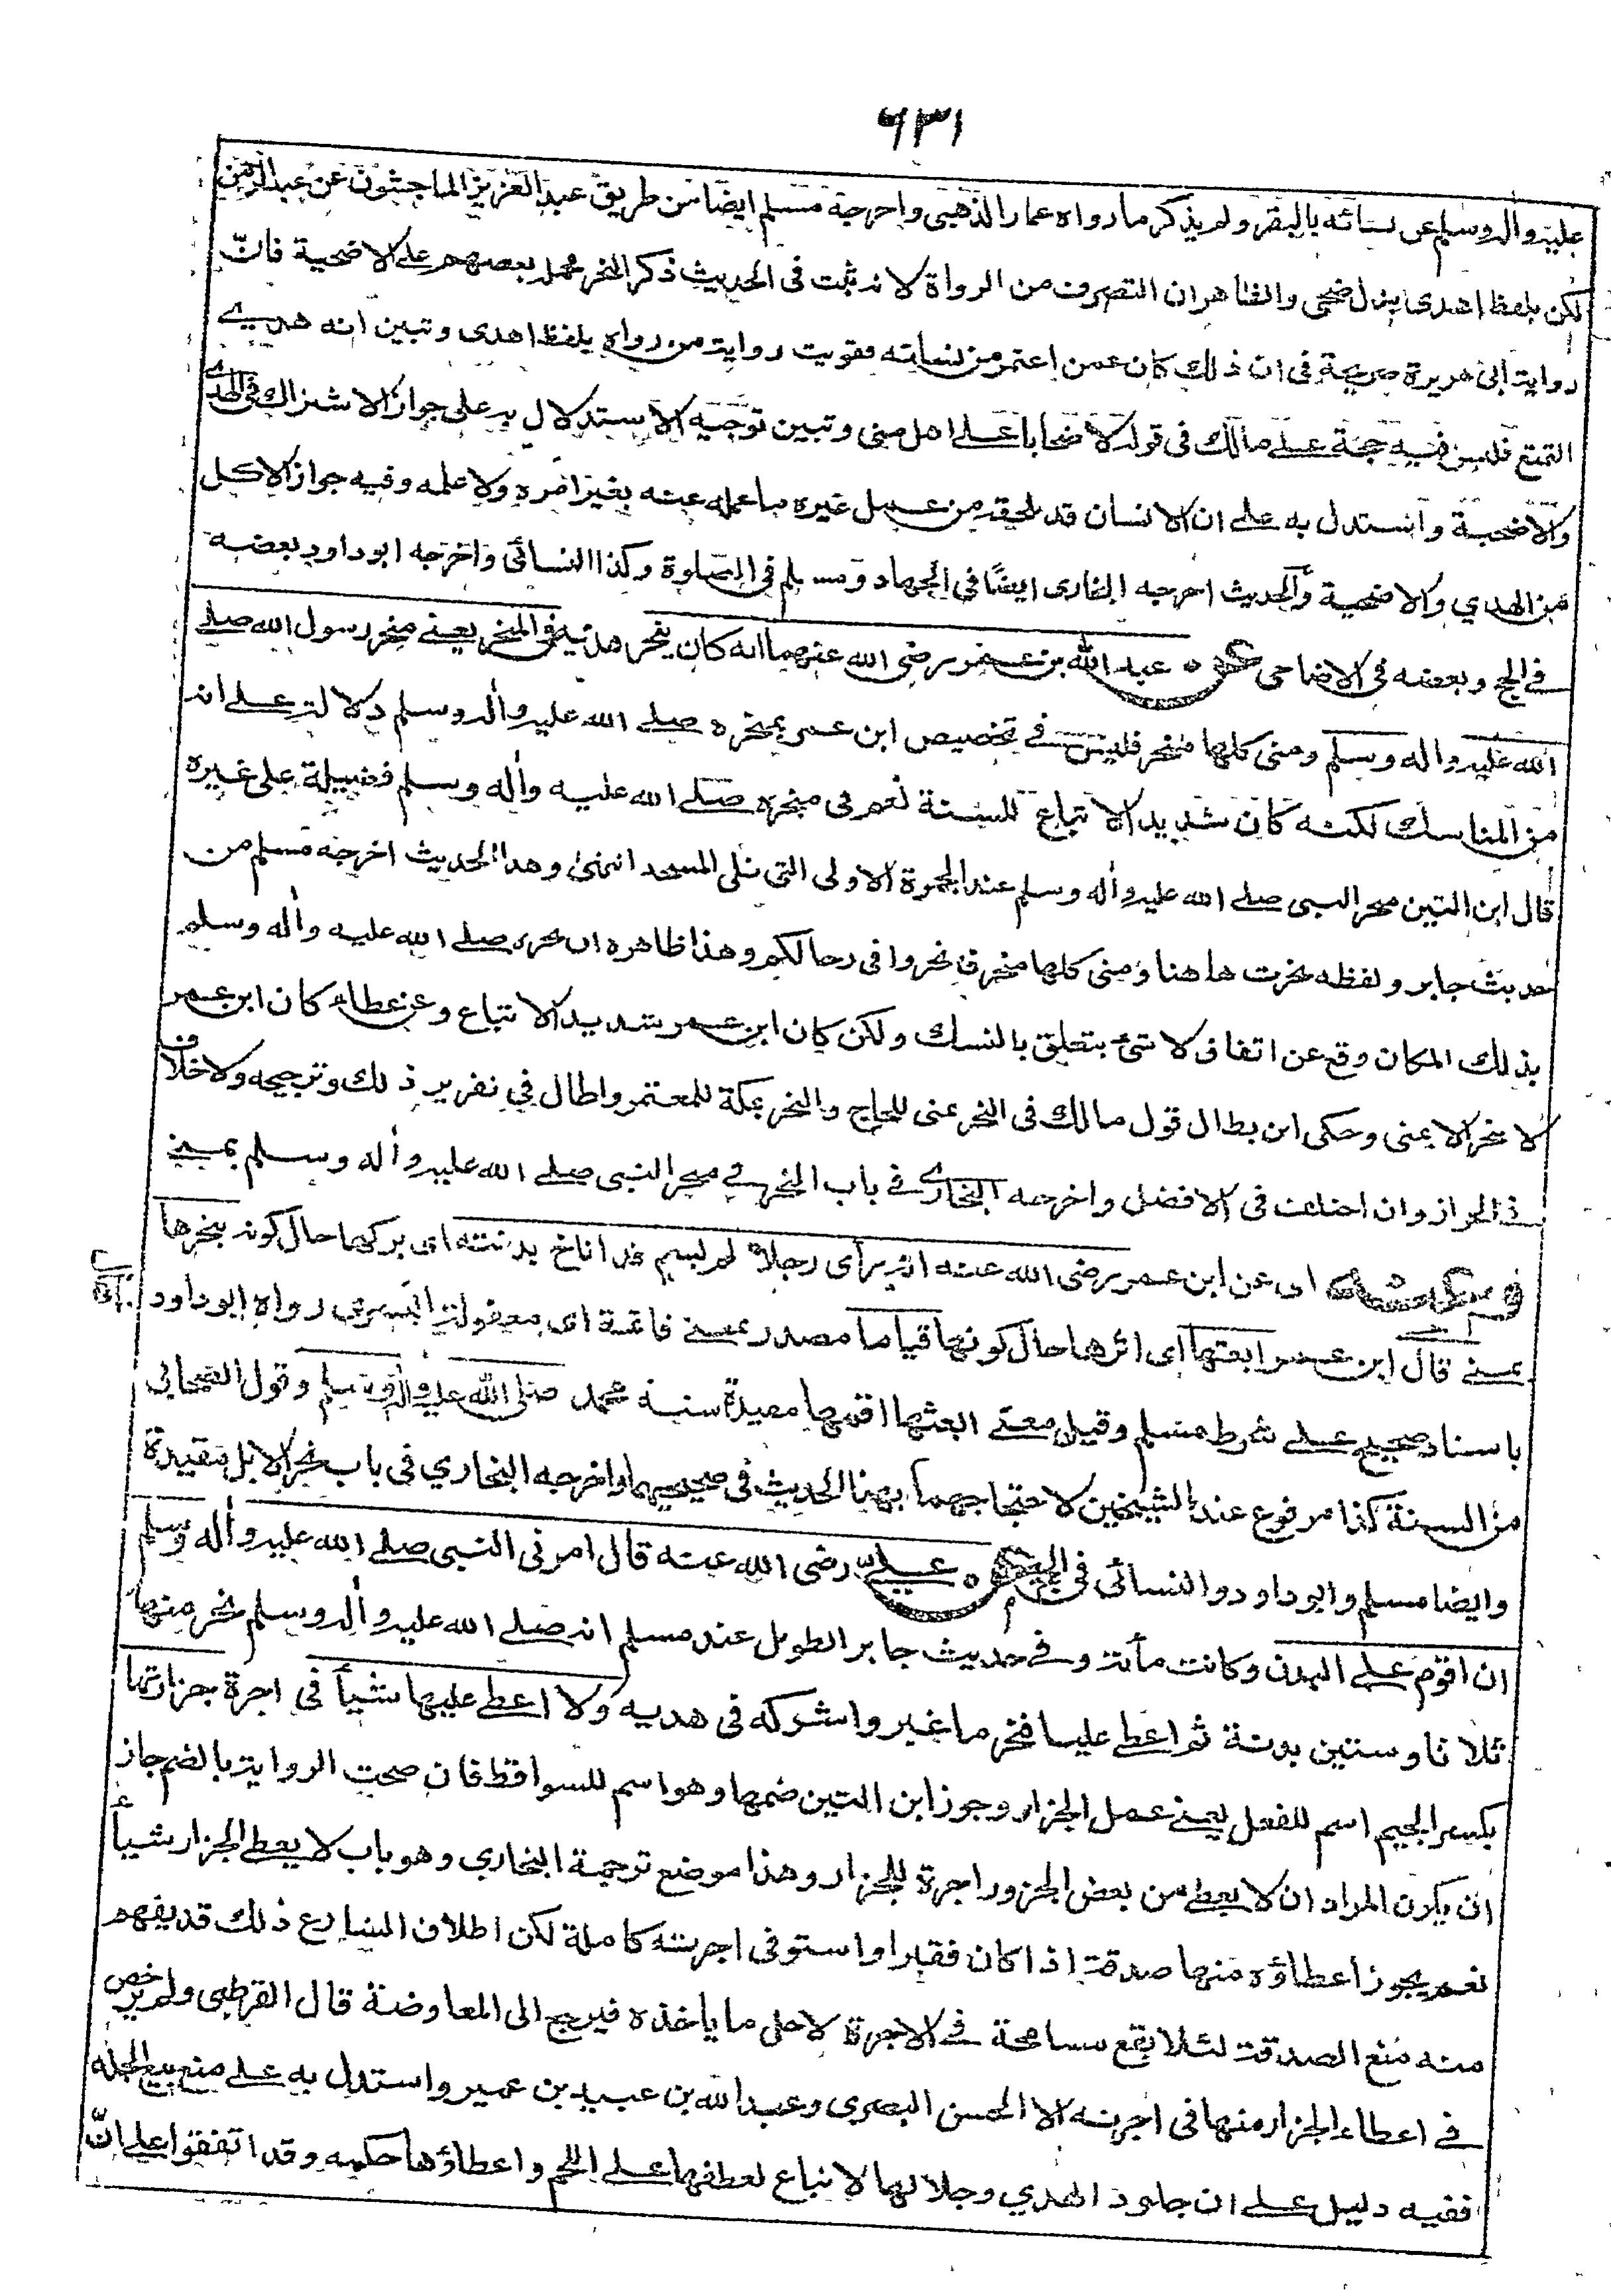 ٦٣١
عليه واله وسلم عن نسائه بالبقر ولم يذكر ما رواه عمار الذهبي واخرجه مسلم ايضا من طريق عبد العزيز الماجشون عن عبد الرحمن
لكن بلفظ اهدى بدل ضحى والظاهر ان التصرف من الرواة لانه ثبت في الحديث ذكر النحر فحمله بعضهم على الاضحية فانّ
رواية ابى هريرة صريحة في ان ذلك كان عمن اعتمر من نسائه فقويت رواية من رواه بلفظ اهدى وتبين انه هدي
التمتع فليس فيه حجة على مالك في قوله لا ضحايا على اهل منى وتبين توجيه الاستدلال به على جواز الاشتراك في الهدي
والاضحية واستدل به على ان الانسان قد يلحقه من عمل غيره ما عمله عنه بغير امره ولا علمه وفيه جواز الاكل
من الهدي والاضحية والحديث اخرجه البخاري ايضًا في الجهاد ومسلم في الصلوة وكذا النسائى واخرجه ابو داود بعضه
في الحج وبعضه في الاضاحى عن عبد الله بن عمر رضى الله عنهما انه كان ينحر هديه في المنحر يعني منحر رسول الله صلى
الله عليه واله وسلم ومنى كلها منحر فليس في تخصيص ابن عمر بمنحره صلى الله عليه واله وسلم دلالة على انه
من المناسك لكنه كان شديد الاتباع للسنة نعم في منحره صلى الله عليه واله وسلم فضيلة على غيره
قال ابن التين منحر النبى صلى الله عليه واله وسلم عند الجمرة الاولى التى تلى المسجد انتهى وهذا الحديث اخرجه مسلم من
حديث جابر ولفظه نحرت هاهنا ومنى كلها منحر فانحروا في رحالكم وهذا ظاهره ان نحره صلى الله عليه واله وسلم
بذلك المكان وقع عن اتفاق لا شئ يتعلق بالنسك ولكن كان ابن عمر شديد الاتباع وعن عطاء كان ابن عمر
لا ينحر الا بمنى وحكى ابن بطال قول مالك في النحر بمنى للحاج والنحر بمكة للمعتمر واطال في تقرير ذلك وترجيحه ولا خلاف
في الجواز وان اختلف في الافضل واخرجه البخاري في باب النحر في منحر النبى صلى الله عليه واله وسلم بمنى
وعنه اى عن ابن عمر رضى الله عنه انه رأى رجلا لم يسم قد اناخ بدنته اى بركها حال كونه ينحرها
بمنى قال ابن عمر ابعثها اى اثرها حال كونها قياما مصدر بمعنى قائمة اى معقولة اليسرى رواه ابو داود
باسناد صحيح على شرط مسلم وقيل معنى ابعثها اقمها مقيدة سنة محمد صلى الله عليه واله وسلم وقول الصحابى
من السنة كذا مرفوع عند الشيخين لاحتجاجهما بهذا الحديث في صحيحيهما واخرجه البخاري في باب نحر الابل مقيدة
وايضا مسلم وابو داود والنسائى في الحج عن علي رضى الله عنه قال امرنى النبى صلى الله عليه واله وسلم
ان اقوم على البدن وكانت مأئة وفي حديث جابر الطويل عند مسلم انه صلى الله عليه واله وسلم نحر منها
ثلاثا وستين بدنة ثم اعطى عليا فنحر ما غبر واشركه في هديه ولا اعطى عليها شيأ في اجرة جزارتها
بكسر الجيم اسم للفعل يعني عمل الجزار وجوز ابن التين ضمها وهو اسم للسواقط فان صحت الرواية بالضم جاز
ان يكون المراد ان لا يعطى من بعض الجزور اجرة للجزار وهذا موضع ترجمة البخاري وهو باب لا يعطى الجزار شيأ
نعم يجوز اعطاؤه منها صدقة اذا كان فقيرا واستوفى اجرته كاملة لكن اطلاق الشارع ذلك قد يفهم
منه منع الصدقة لئلا يقع مسامحة في الاجرة لاجل ما ياخذه فيرجع الى المعاوضة قال القرطبى ولم يرخص
في اعطاء الجزار منها في اجرته الا الحسن البصري وعبد الله بن عبيد بن عمير واستدل به على منع بيع الجلد
ففيه دليل على ان جلود الهدي وجلالها لا تباع لعطفها على اللحم واعطاؤها حكمه وقد اتفقوا على انّ